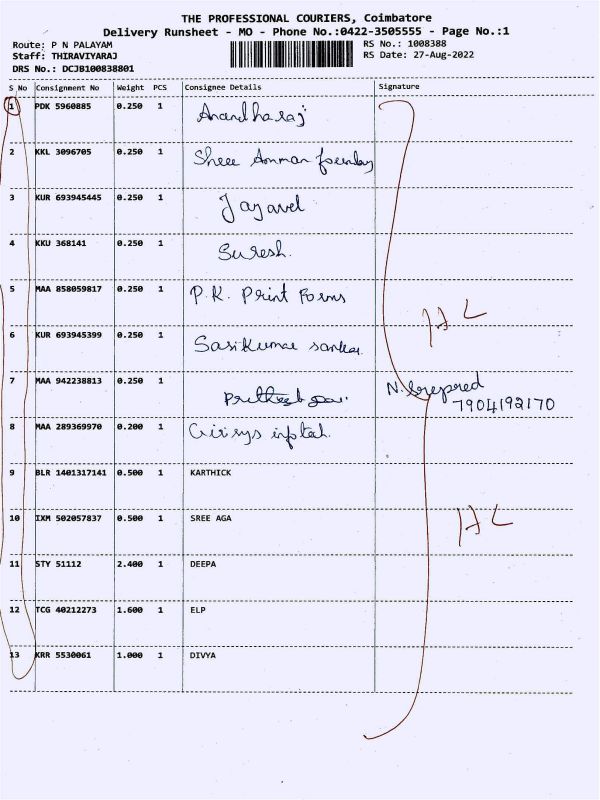 THE PROFESSIONAL COURIERS, Coimbatore
Delivery Runsheet - MO - Phone No.:0422-3505555 - Page No.:1
Route: P N PALAYAM
RS No.: 1008388
Staff: THIRAVIYARAJ
RS Date: 27-Aug-2022
DRS No.: DCJB100838801
S No Consignment No Weight PCS Consignee Details Signature
1 PDK 5960885 0.250 1 Anandharaj
2 KKL 3096705 0.250 1 Shree Amman foundry
3 KUR 693945445 0.250 1 Jayavel
4 KKU 368141 0.250 1 Suresh.
5 MAA 858059817 0.250 1 P.K. Print Forms
6 KUR 693945399 0.250 1 Sasikumar
7 MAA 942238813 0.250 1 N.
7904192170
8 MAA 289369970 0.200 1
9 BLR 1401317141 0.500 1 KARTHICK
10 IXM 502057837 0.500 1 SREE AGA
11 STY 51112 2.400 1 DEEPA
12 TCG 40212273 1.600 1 ELP
13 KRR 5530061 1.000 1 DIVYA